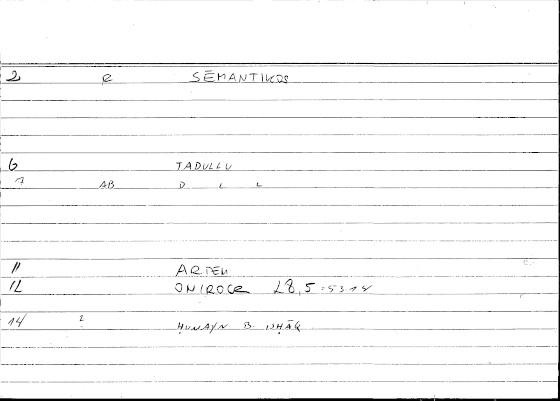 2 e SĒMANTIKOS
6 TADULLU
7 AB D L L
11 ARTEM
12 ONIROCR 28,5 = 53 14
14 2 ḤUNAYN B. ISḤĀQ